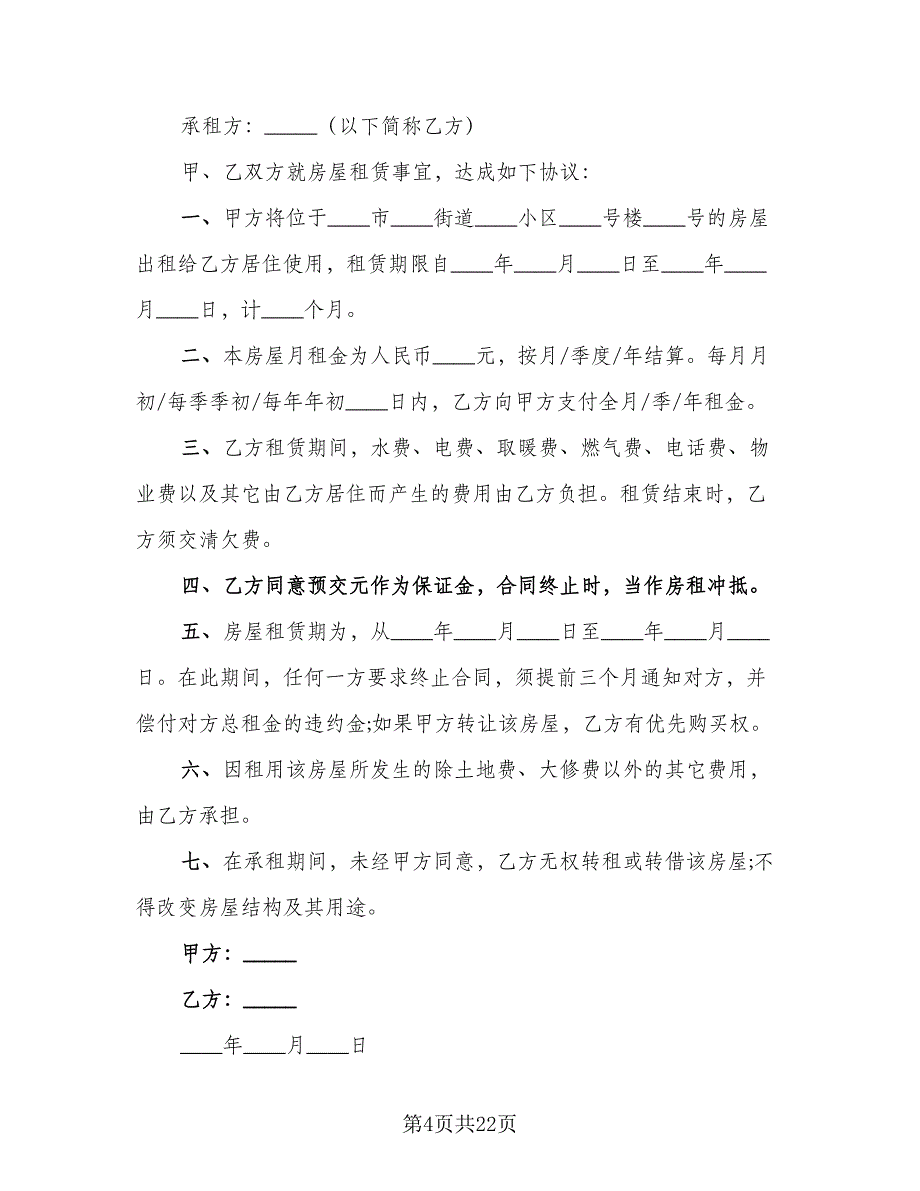 承租方：_____（以下简称乙方）
甲、乙双方就房屋租赁事宜，达成如下协议：
一、甲方将位于____市____街道____小区____号楼____号的房屋
出租给乙方居住使用，租赁期限自____年____月____日至____年____
月____日，计____个月。
二、本房屋月租金为人民币____元，按月/季度/年结算。每月月
初/每季季初/每年年初____日内，乙方向甲方支付全月/季/年租金。
三、乙方租赁期间，水费、电费、取暖费、燃气费、电话费、物
业费以及其它由乙方居住而产生的费用由乙方负担。租赁结束时，乙
方须交清欠费。
四、乙方同意预交元作为保证金，合同终止时，当作房租冲抵。
五、房屋租赁期为，从____年____月____日至____年____月____
日。在此期间，任何一方要求终止合同，须提前三个月通知对方，并
偿付对方总租金的违约金;如果甲方转让该房屋，乙方有优先购买权。
六、因租用该房屋所发生的除土地费、大修费以外的其它费用，
由乙方承担。
七、在承租期间，未经甲方同意，乙方无权转租或转借该房屋;不
得改变房屋结构及其用途。
甲方：_____
乙方：_____
____年____月____日
第4页共22页